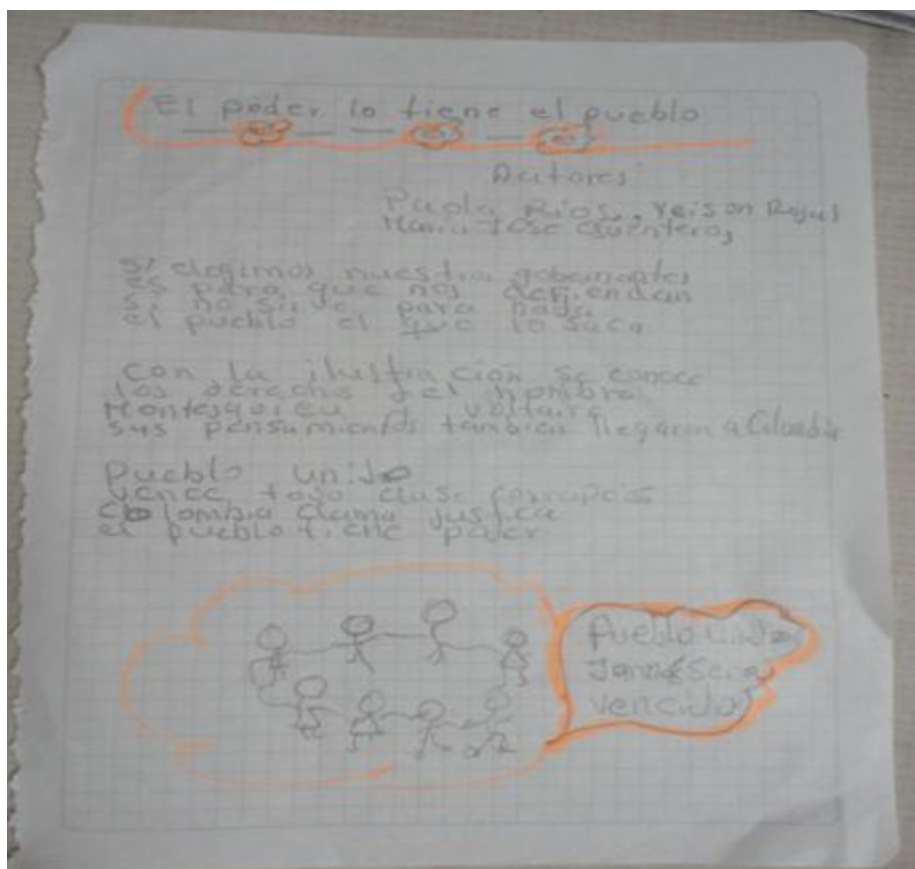 El poder lo tiene el pueblo
Autores
Paola Rios, Yeison Rojas
Maria Jose Quintero,
Si elegimos nuestro gobernantes
es para que nos defiendan
si no sirve para nada
el pueblo el que lo saca
con la ilustración se conoce
los derechos del hombre
Montesquieu voltaire
sus pensamientos tambien llegaron a Colombia
Pueblo unido
vence toda clase
Colombia clama justica
el pueblo tiene poder
Pueblo unido
Jamás sera
vencido